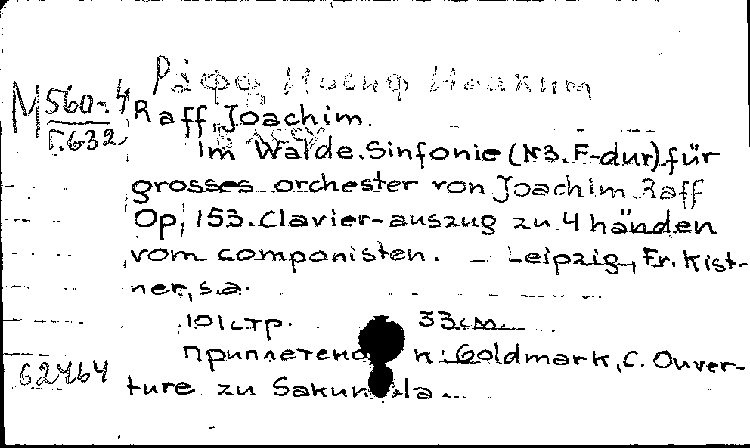 Рафф, Иосиф Иоахим
М 560-4
Г.632
Raff, Joachim.
Im Walde. Sinfonie (N3. F-dur) für
grosses orchester von Joachim Raff
Op, 153. Clavier-auszug zu 4 händen
vom componisten. – Leipzig, Fr. Kist-
ner, s.a.
101 стр. 33 см.
приплетено к: Goldmark, C. Ouver-
62464
ture zu Sakuntala...